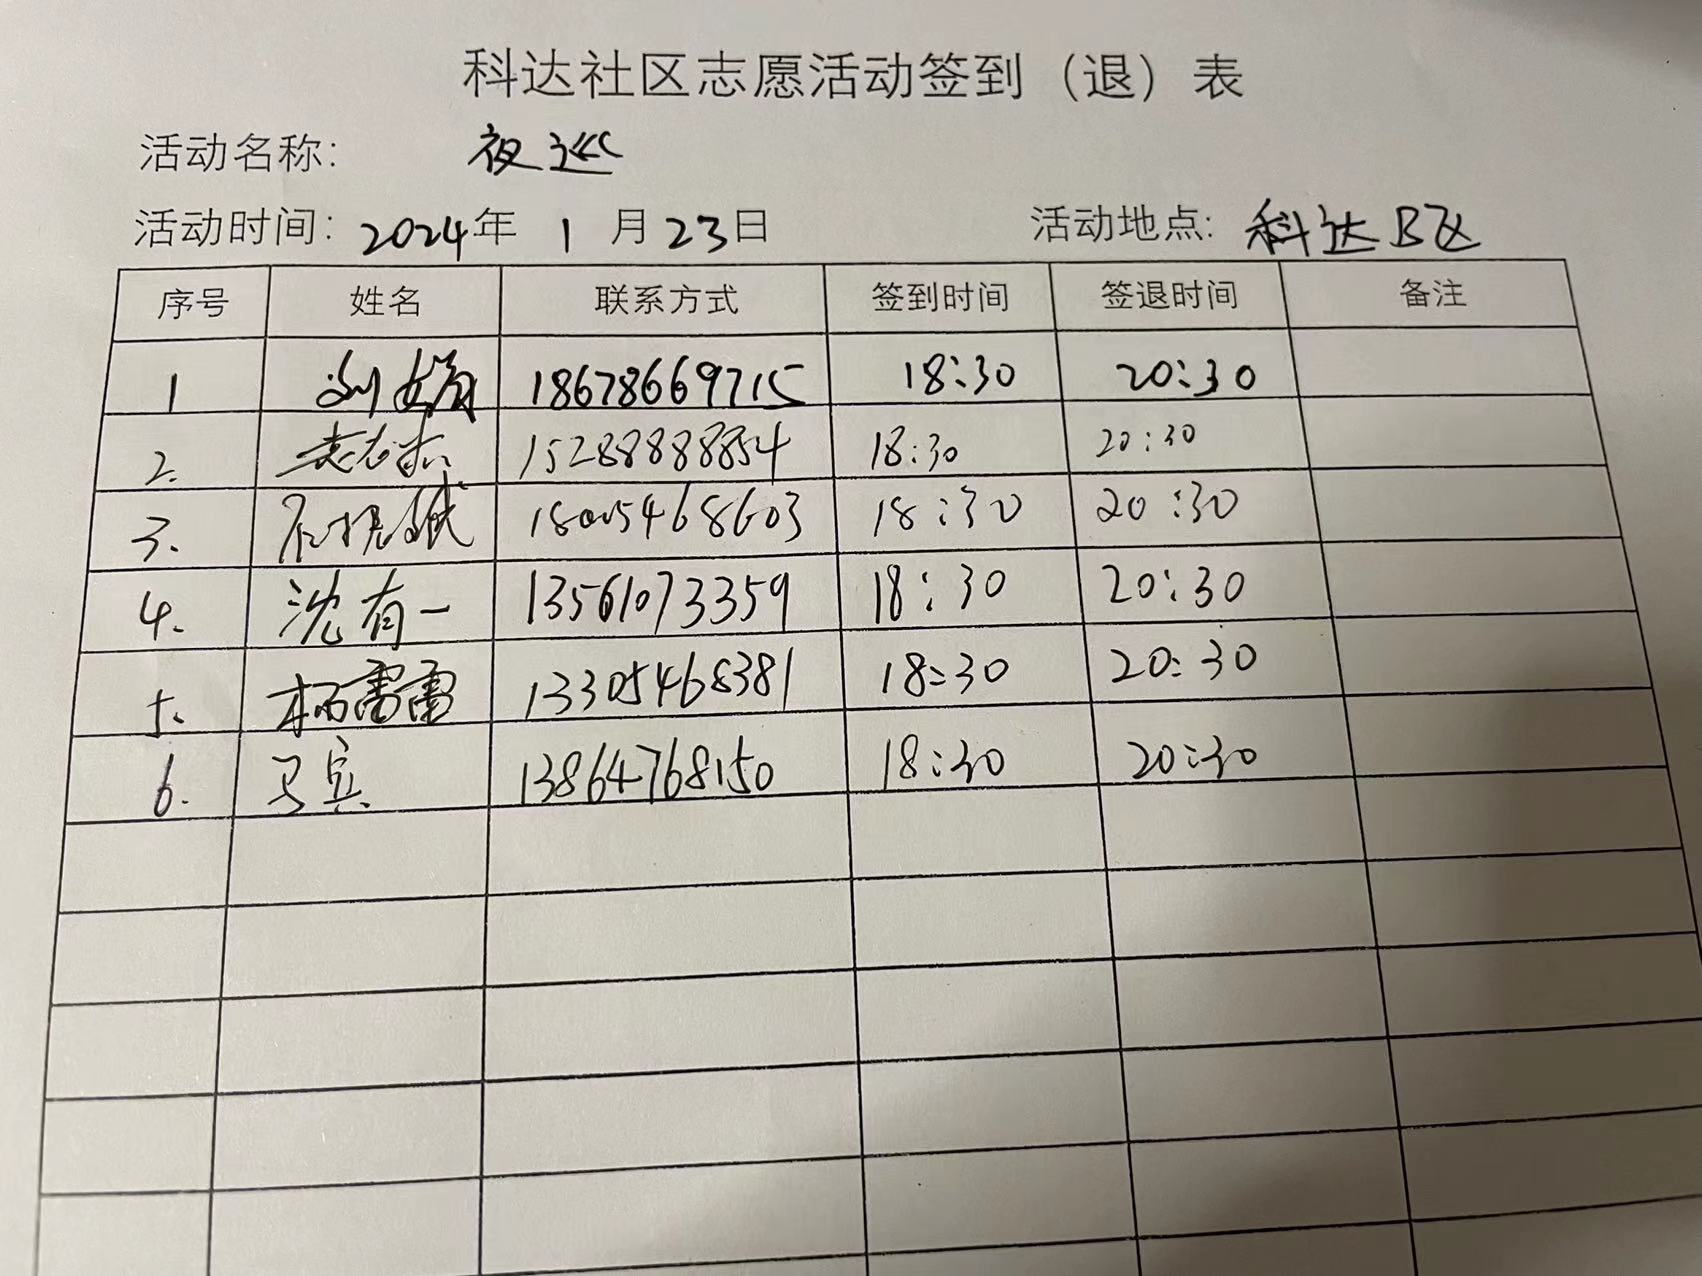 科达社区志愿活动签到（退）表
活动名称: 夜巡
活动时间: 2024年 1 月 23日 活动地点: 科达B区
序号 姓名 联系方式 签到时间 签退时间 备注
1 刘娟 18678669715 18:30 20:30
2. 15288888854 18:30 20:30
3. 18005468603 18:30 20:30
4. 沈有一 13561073359 18:30 20:30
5. 雷雷 13305468381 18:30 20:30
6. 马宾 13864768150 18:30 20:30